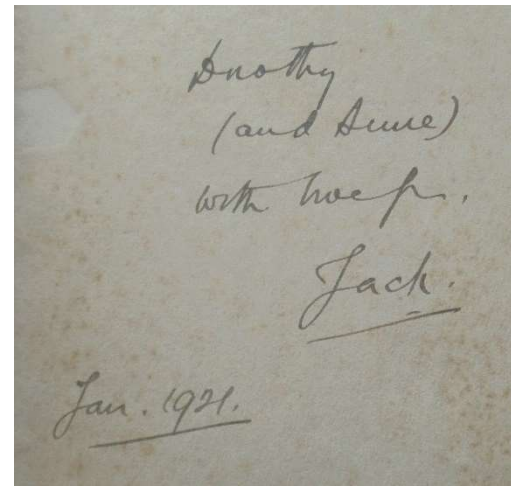 Dorothy
(and Anne)
with love from
Jack.
Jan. 1921.